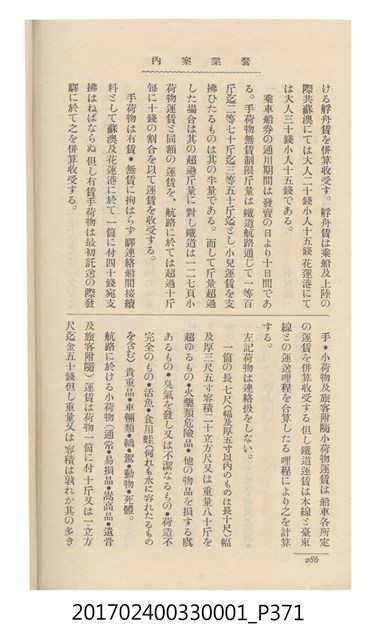 營業案內
ける艀舟賃を併算收受す。艀舟賃は乘船及上陸の
際共蘇澳にては大人二十錢小人十五錢花蓮港にて
は大人三十錢小人十五錢である。
乘車船券の通用期間は發賣の日より十日間であ
る。手荷物無賃制限斤量は鐵道航路通して一等百
斤迄二等七十斤迄三等五十斤迄とし小兒運賃を支
拂ひたるものは其の半量である。而して斤量超過
した場合は其の超過斤量に對し鐵道は一二七頁小
荷物運賃と同額の運賃を、航路に於ては超過十斤
每に十錢の割合を以て運賃を收受する。
手荷物は有賃・無賃に拘はらず驛連絡船間接續
料として蘇澳及花蓮港に於て一箇に付四十錢宛支
拂はねばならぬ 但し有賃手荷物は最初託送の際發
驛に於て之を併算收受する。
手・小荷物及旅客附隨小荷物運賃は船車各所定
の運賃を併算收受する 但し鐵道運賃は本線と臺東
線との運送哩程を合算したる哩程により之を計算
する。
左記荷物は連絡扱をしない。
一箇の長七尺(幅及厚五寸以內のものは長十尺)幅
及厚三尺五寸容積二十立方尺又は重量八十斤を
超ゆるもの・火藥類危險品・他の物品を損する虞
あるもの・臭氣を發し又は不潔なるもの・荷造不
完全のもの・活魚・食用蛙(何れも水に容れたるもの
を含む)貴重品・車輛類・轎・駕・動物・死體。
航路に於ける小荷物(通常・易損品・嵩高品・遺骨
及旅客附隨)運賃は荷物一箇に付十斤又は一立方
尺迄金五十錢但し重量又は容積は孰れか其の多き
286
201702400330001_P371